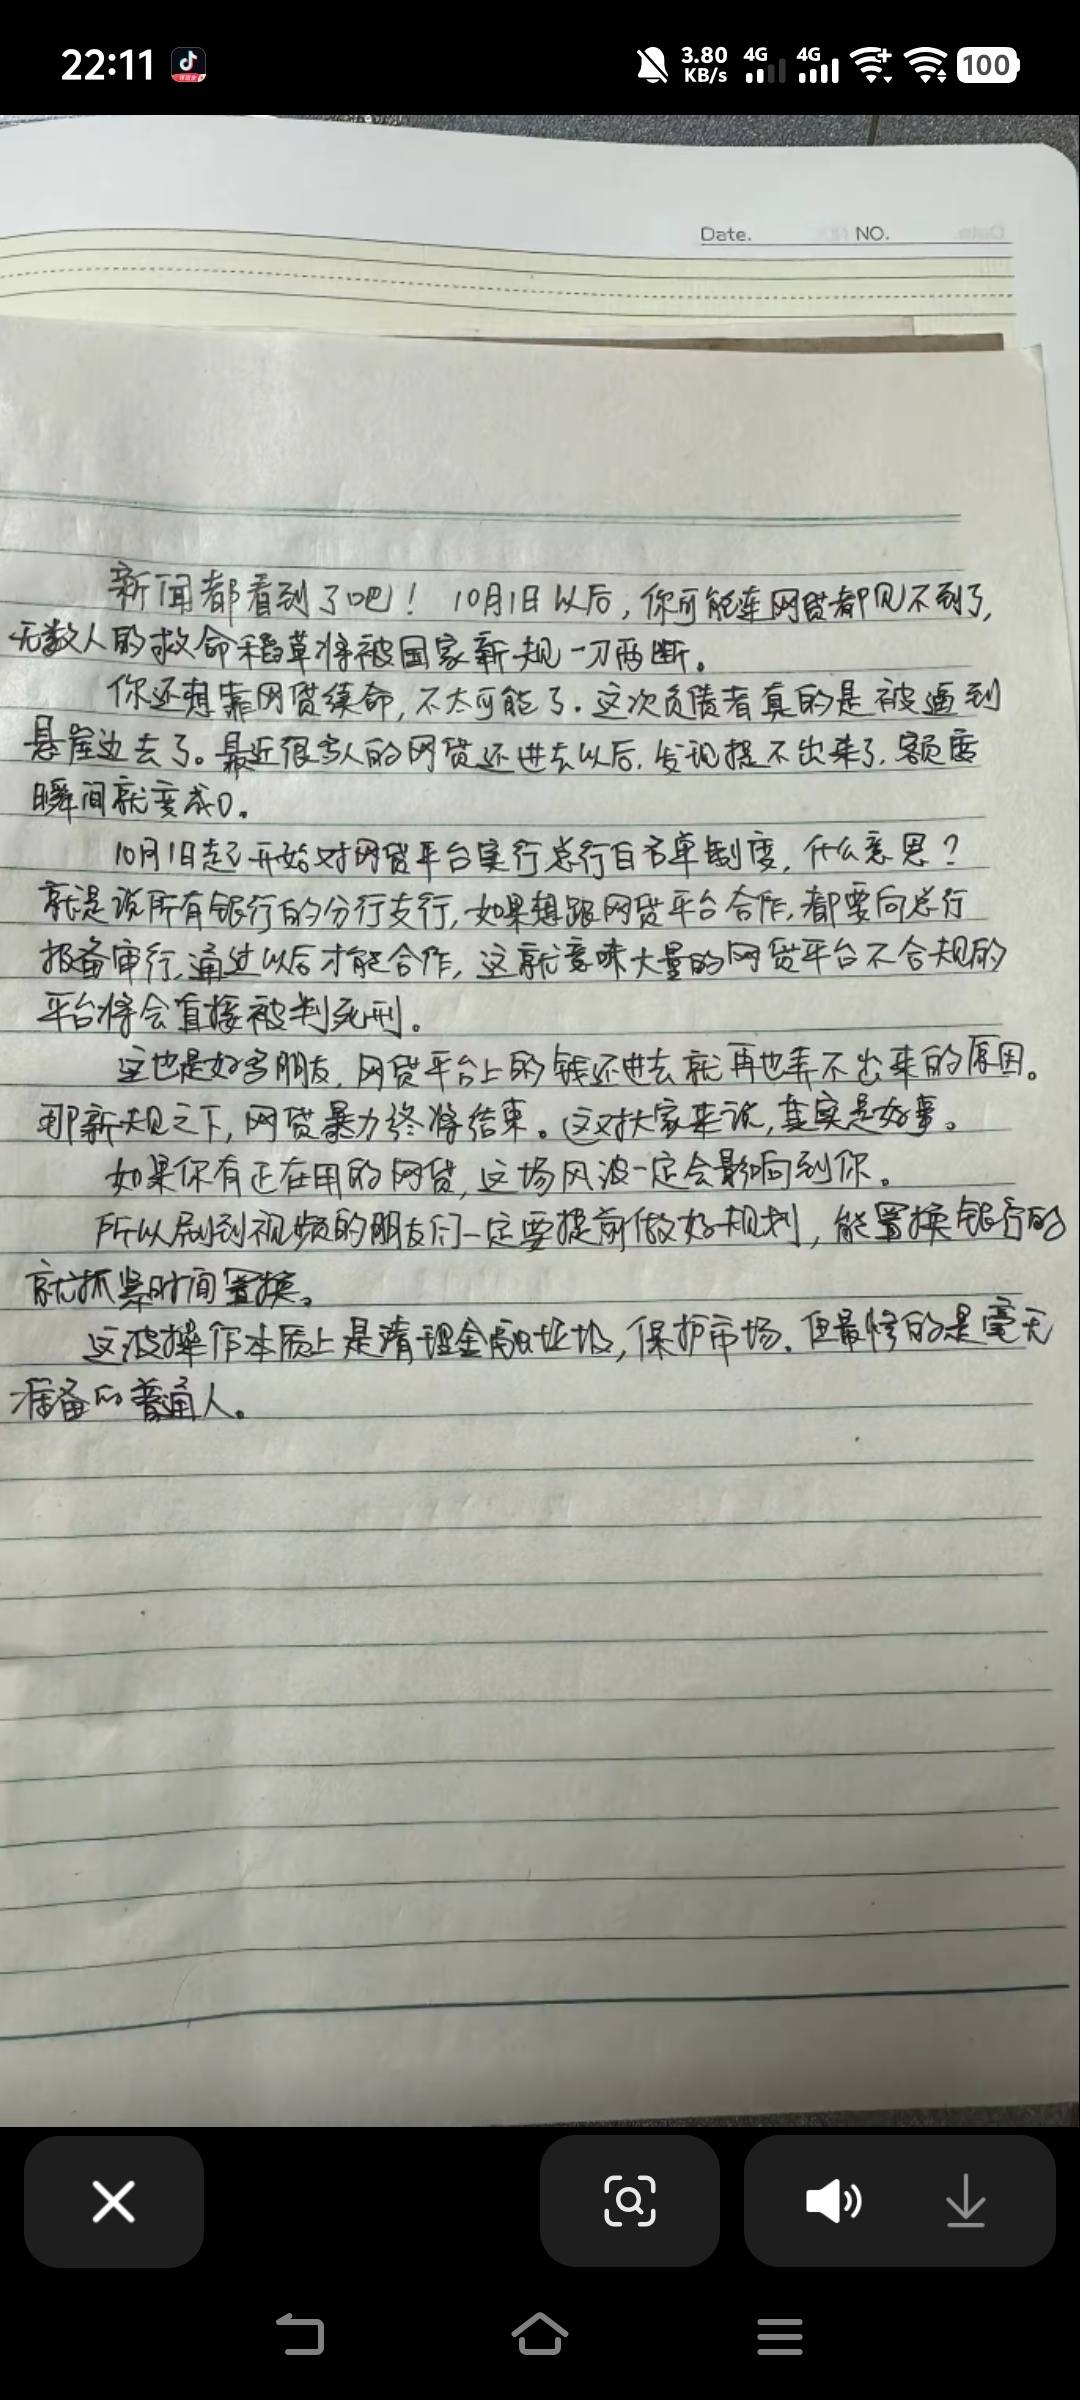 22:11
3.80 KB/s
4G
4G
100
Date.
NO.
新闻都看到了吧！10月1日以后，你可能连网贷都见不到了，
无数人的救命稻草将被国家新规一刀两断。
你还想靠网贷续命，不太可能了．这次负债者真的是被逼到
悬崖边去了。最近很多人的网贷还进去以后，发现提不出来了，额度
瞬间就变成0。
10月1日起开始对网贷平台实行总行白名单制度，什么意思？
就是说所有银行的分行支行，如果想跟网贷平台合作，都要向总行
报备审行，通过以后才能合作，这就意味大量的网贷平台不合规的
平台将会直接被判死刑。
这也是好多朋友，网贷平台上的钱还进去就再也弄不出来的原因。
那新规之下，网贷暴力终将结束。这对大家来说，其实是好事。
如果你有正在用的网贷，这场风波一定会影响到你。
所以刷到视频的朋友们一定要提前做好规划，能置换银行的
就抓紧时间置换。
这波操作本质上是清理金融垃圾，保护市场．但最惨的是毫无
准备的普通人。